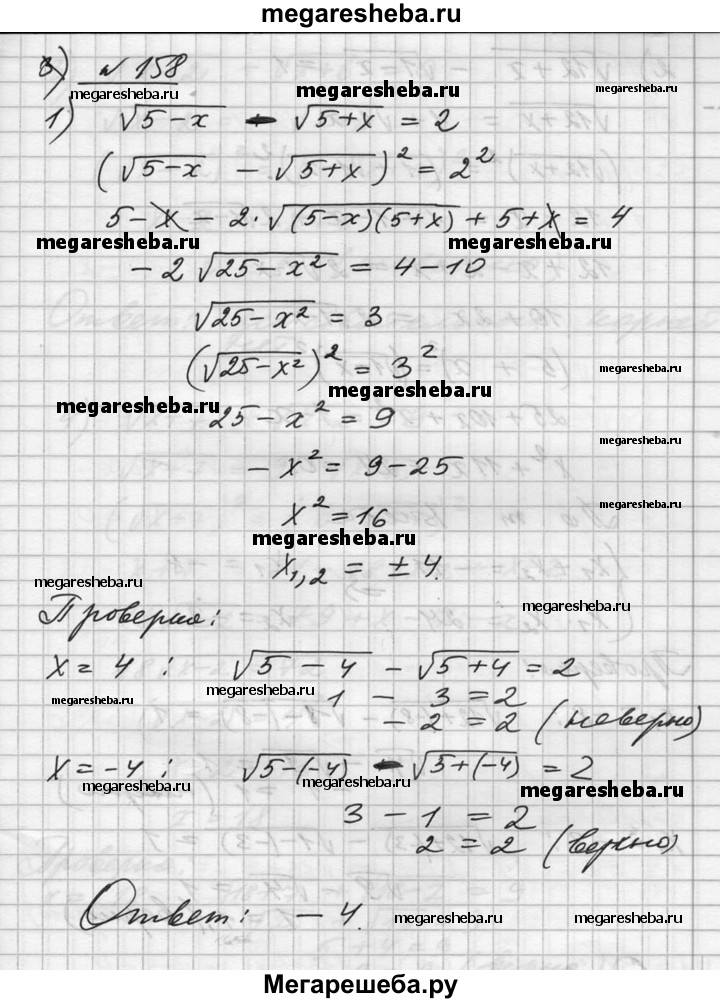 megaresheba.ru
3) № 158
megaresheba.ru megaresheba.ru megaresheba.ru
1) √(5-x) - √(5+x) = 2
(√(5-x) - √(5+x))² = 2²
5-x - 2·√((5-x)(5+x)) + 5+x = 4
megaresheba.ru megaresheba.ru
-2 √(25-x²) = 4-10
√(25-x²) = 3
(√(25-x²))² = 3²
megaresheba.ru
megaresheba.ru
megaresheba.ru
25-x² = 9
megaresheba.ru
-x² = 9-25
megaresheba.ru
x² = 16
megaresheba.ru
x₁,₂ = ±4.
megaresheba.ru
megaresheba.ru
Проверка:
x = 4 : √(5-4) - √(5+4) = 2
megaresheba.ru megaresheba.ru megaresheba.ru
1 - 3 = 2
-2 = 2 (неверно)
x = -4 : √(5-(-4)) - √(5+(-4)) = 2
megaresheba.ru megaresheba.ru megaresheba.ru
3 - 1 = 2
2 = 2 (верно)
Ответ: -4.
megaresheba.ru megaresheba.ru megaresheba.ru
Мегарешеба.ру